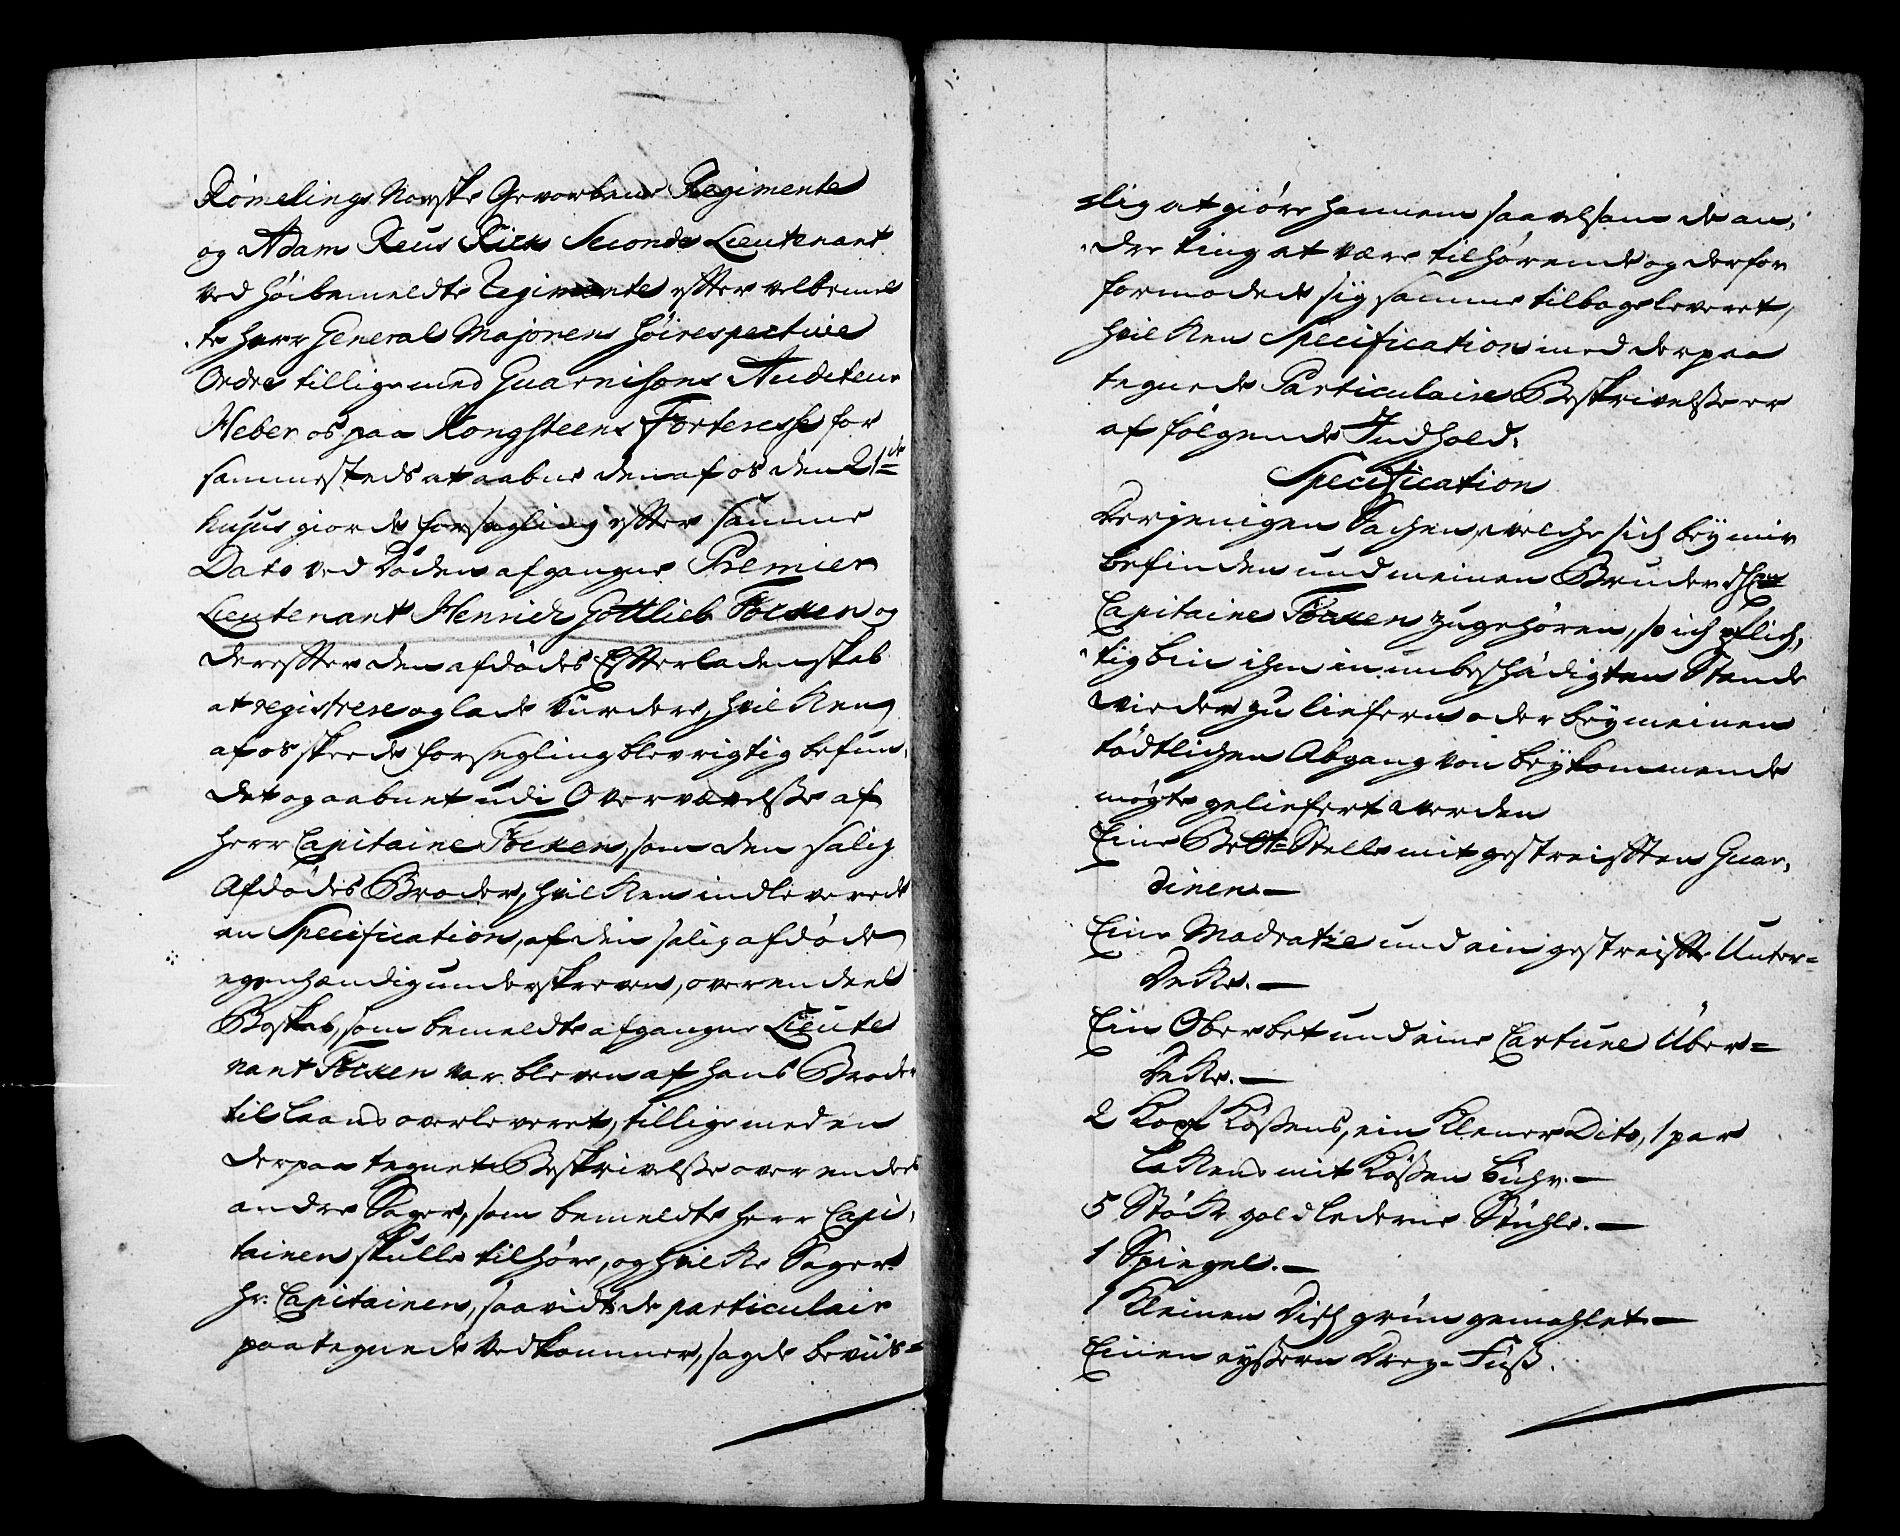 Römelings Norske Gevorbene Regimente
og Adam Reus Rick Seconde Lieutenant
ved høibemeldte Regimente efter velbemel
te Herr General Majorens høirespective
Ordre tillige med Guarnisons Auditeur
Heber os paa Kongsteens Forteresse for
sammesteds at aabne den af os den 21de
hujus giorde forsegling efter samme
Dato ved Døden afgangne Premier
Lieutenant Henrich GottliebFöcken og
derefter den afdødes Efterladenskab
at registrere og lade vurdere, hvilken
af os skeede forsegling blev rigtig befun,
det og aabnet udi Overværelsse af
Herr Capitaine Föcken, som den salig
Afdødes Broder, hvilken indleverede
en Specification, af den salig afdøde
egenhændig underskreven, over en deel
Boskab, som bemeldte afgangne Lieute
nant Föcken var bleven af hans Broder
til Laans overleveret, tillige med en
derpaa tegnet Beskrivelsse over en deel
andre Sager, som bemeldte Herr Capi,
tainen skulle tilhøre, og hvilke Sager
Hr: Capitainen, saavidt de particulair
paategnede vedkommer, sagde beviis=
slig at giøre hannem saavelsom de an,
dre ting at være tilhørende og derfor
formodede sig samme tilbageleveret,
hvilken Specification med derpaa
tegnede Particulaire Beskrivelsse er
af følgende Indhold:
Specification
Derjenigen Sachen, welche sich bey mir
befinden und meinen Bruder Hen
Capitaine Föcken zugehören, so ich pflich,
tig bin ihm in unbeschädigten Stande
wieder zu liefern oder bey meinen
tödtlichen Abgang von beykommende
mögte geliefert werden
Eine Bett=Stelle mit gestreifften Guar,
dinen. —
Eine Madratze und ein gestreiffte Unter=
Decke. —
Ein Oberbet und eine Cartune Über=
Decke. —
2 Kopf Küssens, ein Klener Dito, 1 par
Lakens mit Küssen Bühr. —
5 Stück goldlederne Stühle. —
1 Spiegel. —
1 Kleinen Disch grün gemahlet —
Einen eyssern Drey=Fuss.